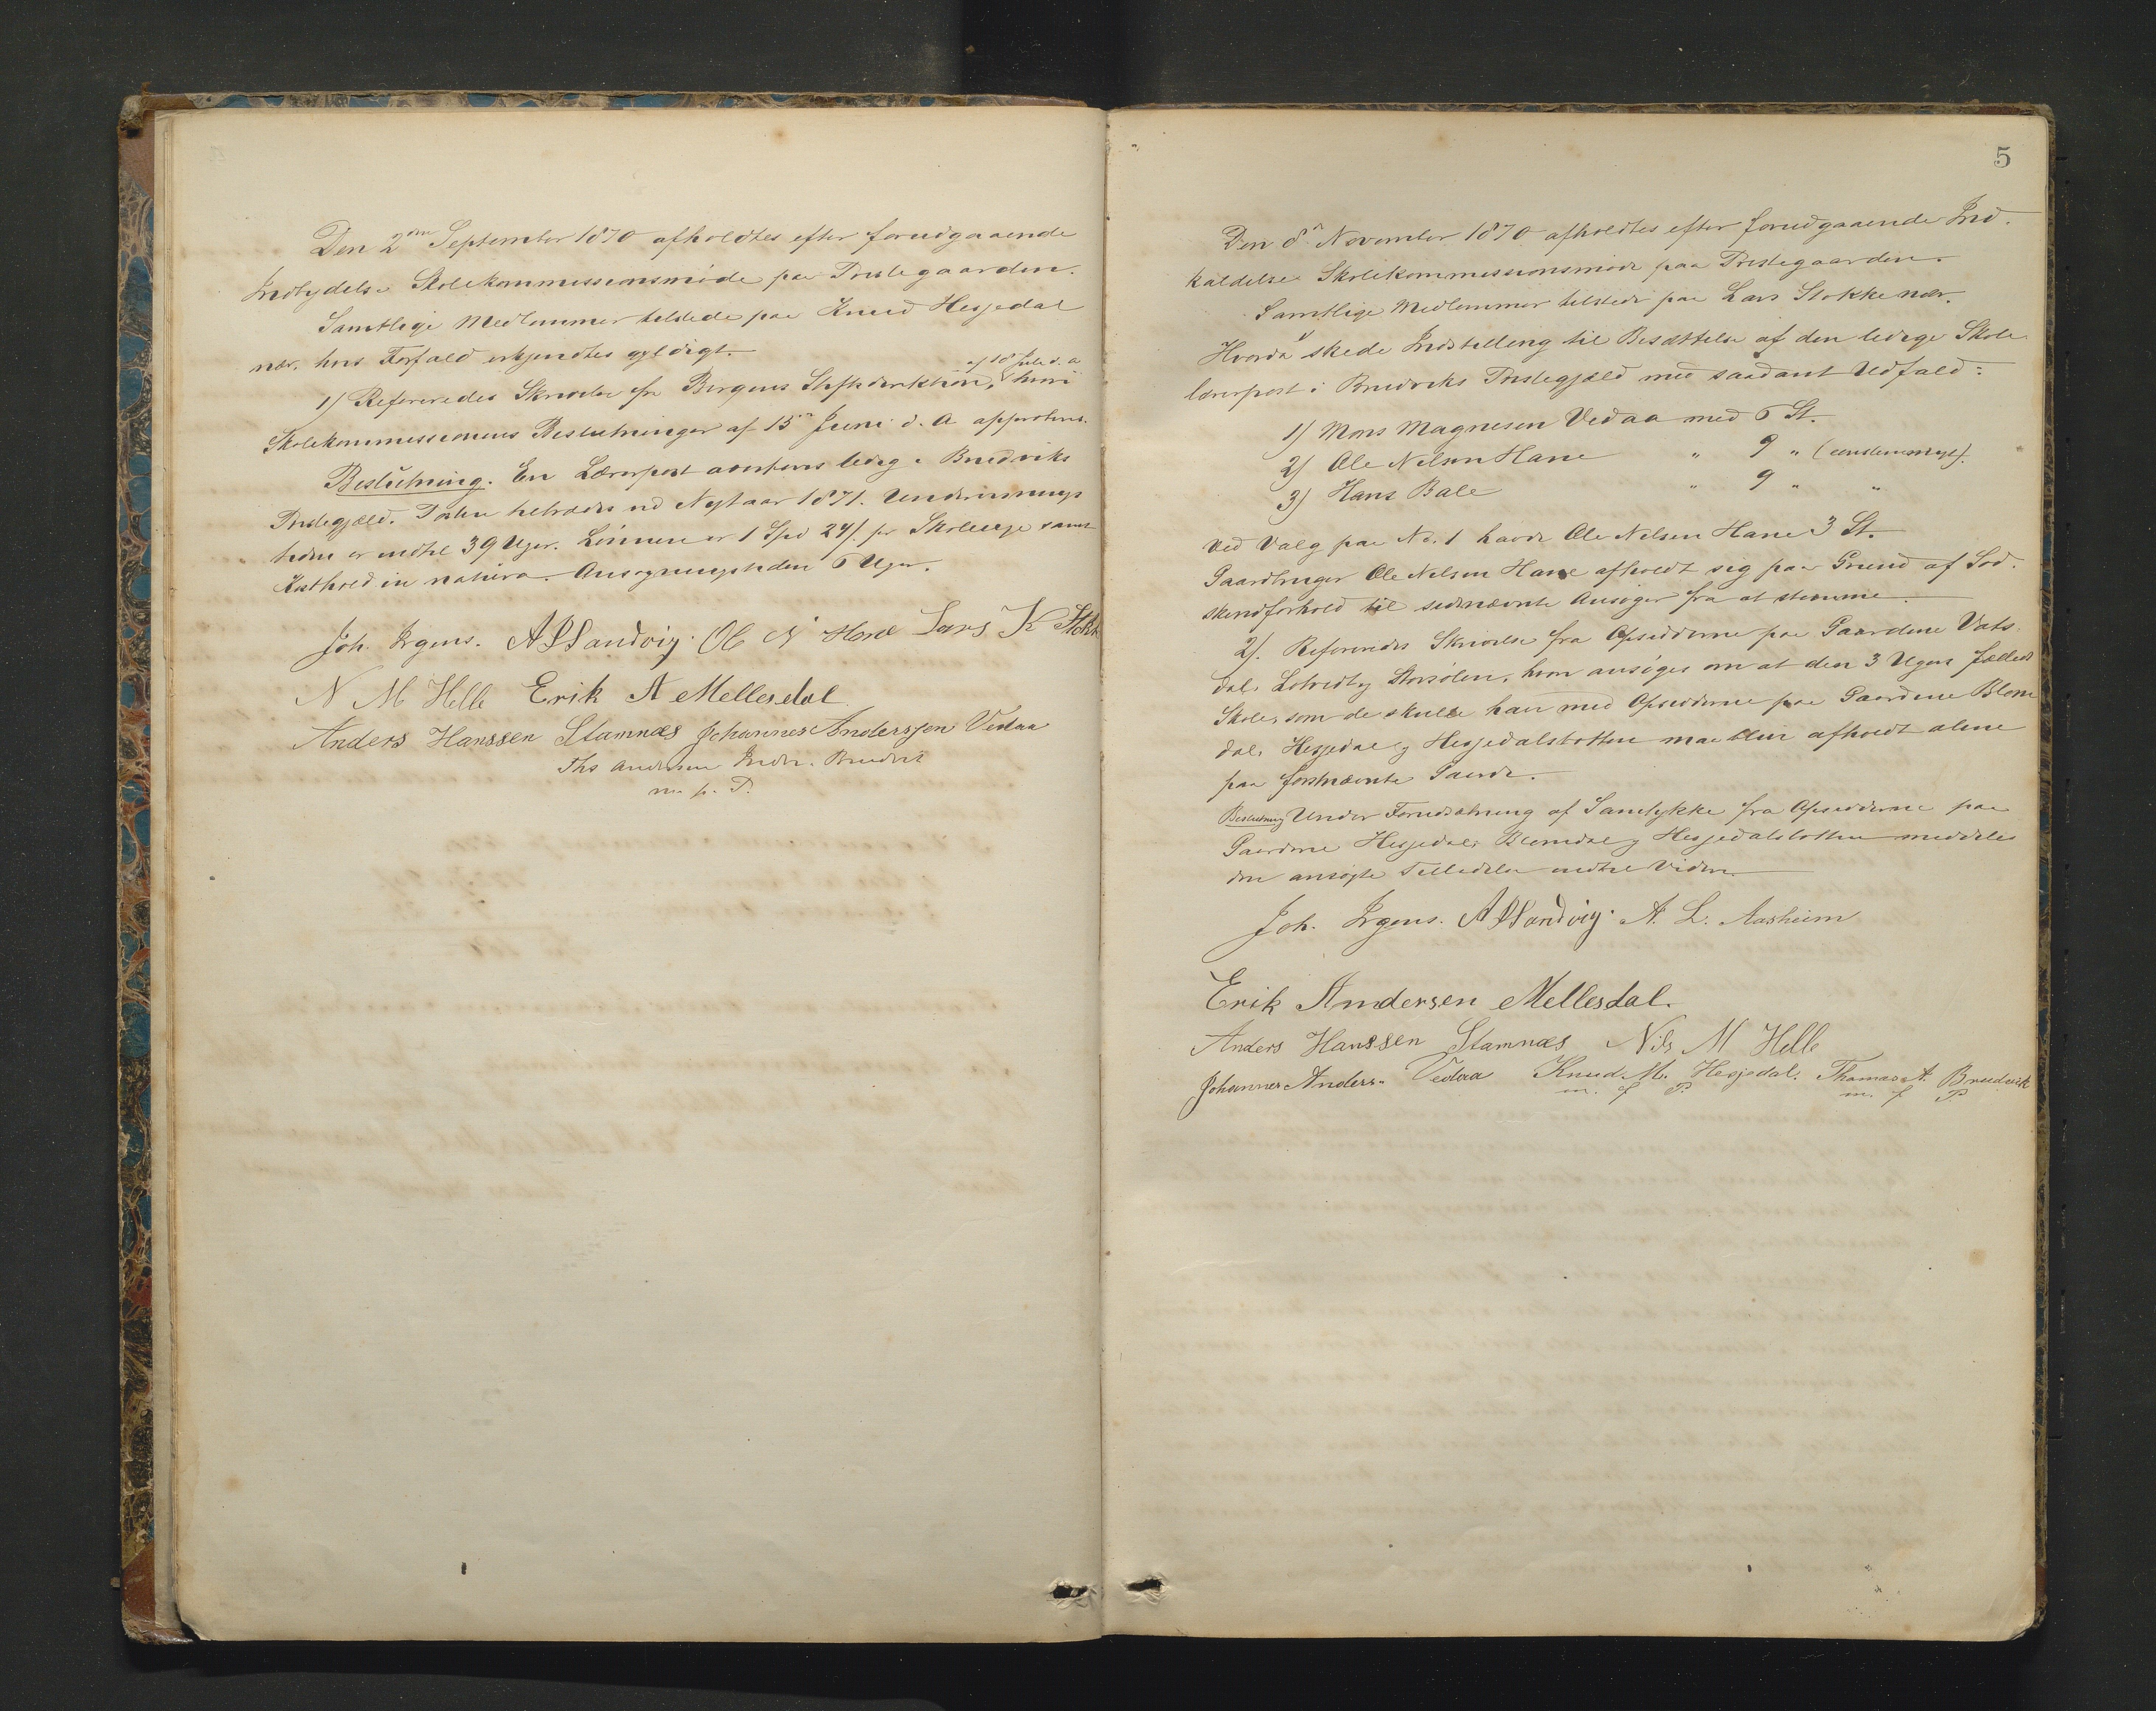 Den 2den September 1870 afholdtes efter forudgaaende
Indbydelse Skolekommissionsmøde paa Præstegaarden.
Samtlige Medlemmer tilstede paa Knud Hesjedal
nær, hvis Forfald erkjendtes gyldigt.
1) Refereredes Skrivelse fra Bergens Stiftsdirektion, af 18 Juli d. a. hvori
Skolekommissionens Beslutninger af 15de Juni d. A approberes.
Beslutning. En Lærerpost avertens ledig i Bruviks
Præstegjæld. Posten tiltrædes ved Nytaar 1871. Undervisnings
tiden er indtil 39 Uger. Lønnen er 1 Spd 24 s. pr Skoleuge samt
Kosthold in natura. Ansøgningstiden 6 Uger.
Joh. Irgens. A S Sandvig. Ole N Hane Lars K Stokke
N M Helle Erik A Mellesdal
Anders Hanssen Stamnæs Johannes Anderssen Vedaa
Ths Andersen Bruvik
m. p. P.
5
Den 8de November 1870 afholdtes efter forudgaaende Ind-
kaldelse Skolekommissionsmøde paa Præstegaarden.
Samtlige Medlemmer tilstede paa Lars Stokke nær.
Hvorda 1) skede Indstilling til Besættelse af den ledige Skole
lærerpost i Bruviks Præstegjæld med saadant Udfald:
1) Mons Magnesen Vedaa med 6 St.
2) Ole Nilsen Hane " 9 " (eenstemmigt).
3) Hans Bale " 9 " "
Ved Valg paa No. 1 havde Ole Nilsen Hane 3 St.
Gaardbruger Ole Nilsen Hane afholdt sig paa Grund af Sød-
skendforhold til sidnævnte Ansøger fra at stemme.
2). Refereredes Skrivelse fra Opsidderne paa Gaardene Vats
dal, Lotvedt og Storsølen, hvori ansøges om at den 3 Ugers fælleds
Skole, som de skulde have med Opsidderne paa Gaardene Blom
dal, Hesjedal og Hesjedalstotten maa blive afholdt alene
paa førstnævnte Gaarde.
Beslutning Under Forudsætning af Samtykke fra Opsidderne paa
Gaardene Hesjedal, Blomdal og Hesjedalstotten meddeles
den ansøgte Tilladelse indtil Videre.
Joh. Irgens. A S Sandvig. A. L. Aasheim
Erik Andersen Mellesdal.
Anders Hanssen Stamnæs Nils M Helle
Johannes Anders. Vedaa Knud M. Hesjedal. Thomas A. Bruvik
m. f. P. m. f. P.